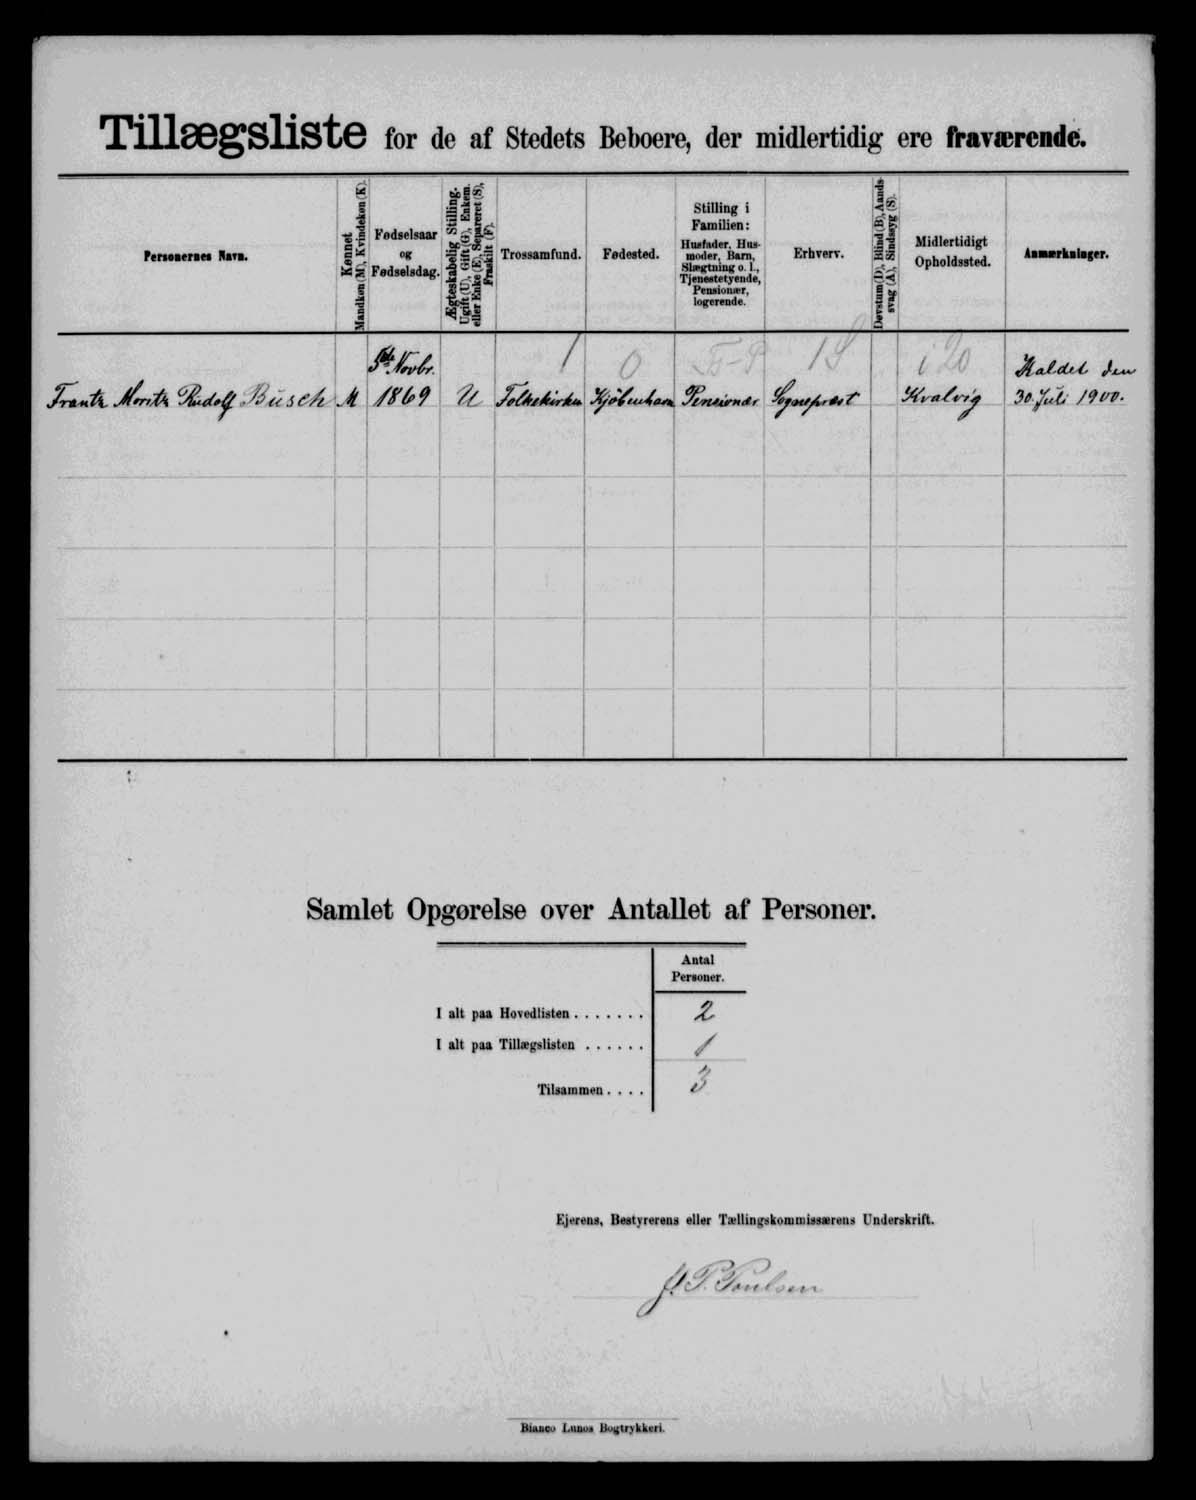 Tillægsliste for de af Stedets Beboere, der midlertidig ere fraværende.
Personernes Navn.
Kønnet
Mandkøn (M), Kvindekøn (K).
Fødselsaar
og
Fødselsdag.
Ægteskabelig Stilling.
Ugift (U), Gift (G), Enkem.
eller Enke (E), Separeret (S),
Fraskilt (F).
Trossamfund.
Fødested.
Stilling i
Familien:
Husfader, Hus-
moder, Barn,
Slægtning o. l.,
Tjenestetyende,
Pensionær,
logerende.
Erhverv.
Døvstum (D), Blind (B), Aands-
svag (A), Sindssyg (S).
Midlertidigt
Opholdssted.
Anmærkninger.
1 0 F-P 1 i 20
5te Novbr. Kaldet den
Frantz Moritz Rudolf Busch M 1869 U Folkekirken Kjøbenhavn Pensionær Sognepræst Kvalvig 30. Juli 1900.
Samlet Opgørelse over Antallet af Personer.
Antal
Personer.
I alt paa Hovedlisten . . . . . . . 2
I alt paa Tillægslisten . . . . . . 1
Tilsammen . . . . 3
Ejerens, Bestyrerens eller Tællingskommissærens Underskrift.
P. Poulsen
Bianco Lunos Bogtrykkeri.